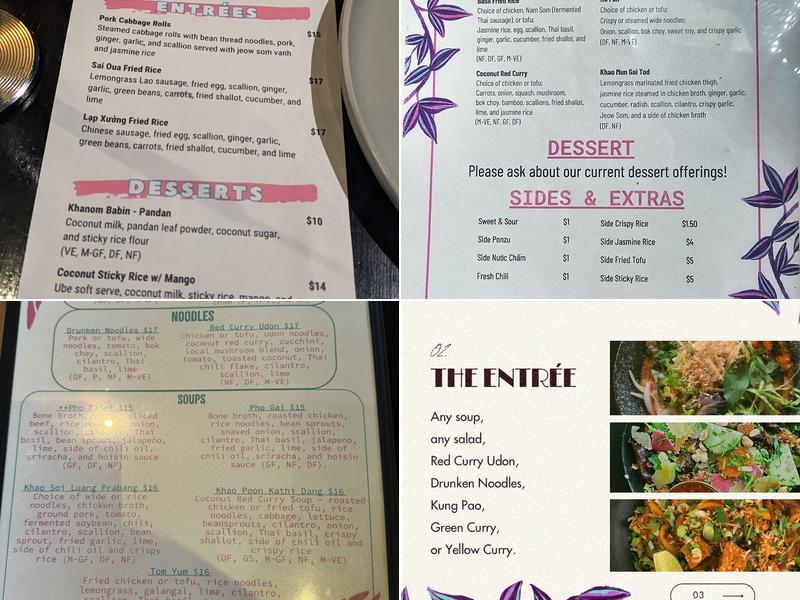 ENTRÉES
Pork Cabbage Rolls
Steamed cabbage rolls with bean thread noodles, pork, $15
ginger, garlic, and scallion served with jeow som vanh
and jasmine rice
Sai Oua Fried Rice
Lemongrass Lao sausage, fried egg, scallion, ginger, $17
garlic, green beans, carrots, fried shallot, cucumber, and
lime
Lạp Xưởng Fried Rice
Chinese sausage, fried egg, scallion, ginger, garlic, $17
green beans, carrots, fried shallot, cucumber, and lime
DESSERTS
Khanom Babin - Pandan $10
Coconut milk, pandan leaf powder, coconut sugar,
and sticky rice flour
(VE, M-GF, DF, NF)
Coconut Sticky Rice w/ Mango $14
Ube soft serve, coconut milk, sticky rice, mango, and
Basil Fried Rice
Choice of chicken, Nam Som (fermented
Thai sausage), or tofu:
Jasmine rice, egg, scallion, Thai basil,
ginger, garlic, cucumber, fried shallot, and
lime
(NF, DF, GF, M-VE)
Choice of chicken or tofu:
Crispy or steamed wide noodles:
Onion, scallion, bok choy, sweet soy, and crispy garlic
(DF, NF, M-VE)
Coconut Red Curry
Choice of chicken or tofu:
Carrots, onion, squash, mushroom,
bok choy, bamboo, scallions, fried shallot,
lime, and jasmine rice
(M-VE, NF, GF, DF)
Khao Mun Gai Tod
Lemongrass marinated fried chicken thigh,
jasmine rice steamed in chicken broth, ginger, garlic,
cucumber, radish, scallion, cilantro, crispy garlic,
Jeow Som, and a side of chicken broth
(DF, NF)
DESSERT
Please ask about our current dessert offerings!
SIDES & EXTRAS
Sweet & Sour $1
Side Ponzu $1
Side Nước Chấm $1
Fresh Chili $1
Side Crispy Rice $1.50
Side Jasmine Rice $4
Side Fried Tofu $5
Side Sticky Rice $5
NOODLES
Drunken Noodles $17
Pork or tofu, wide
noodles, tomato, bok
choy, scallion,
cilantro, Thai
basil, lime
(DF, P, NF, M-VE)
Red Curry Udon $17
Chicken or tofu, udon noodles,
coconut red curry, zucchini,
local mushroom blend, onion,
tomato, toasted coconut, Thai
chili flake, cilantro,
scallion, lime
(NF, DF, M-VE)
SOUPS
**Pho $15
Bone broth, sliced
beef, rice onion,
scallion, cilantro, Thai
basil, bean sprout, jalapeño,
lime, side of chili oil,
sriracha, and hoisin sauce
(GF, DF, NF)
Pho Gai $15
Bone broth, roasted chicken,
rice noodles, bean sprouts,
shaved onion, scallion,
cilantro, Thai basil, jalapeno,
fried garlic, lime, side of
chili oil, sriracha, and hoisin
sauce (GF, NF, DF).
Khao Soi Luang Prabang $16
Choice of wide or rice
noodles, chicken broth,
ground pork, tomato,
fermented soybean, chili,
cilantro, scallion, bean
sprout, fried garlic, lime,
side of chili oil and crispy
rice (M-GF, DF, NF)
Khao Poon Kathi Dang $16
Coconut Red Curry Soup - roasted
chicken or fried tofu, rice
noodles, cabbage, lettuce,
beansprouts, cilantro, onion,
scallion, Thai basil, crispy
shallot, side of chili oil and
crispy rice
(DF, GS, M-GF, NF, M-VE)
Tom Yum $16
Fried chicken or tofu, rice noodles,
lemongrass, galangal, lime, cilantro,
02.
THE ENTRÉE
Any soup,
any salad,
Red Curry Udon,
Drunken Noodles,
Kung Pao,
Green Curry,
or Yellow Curry.
03